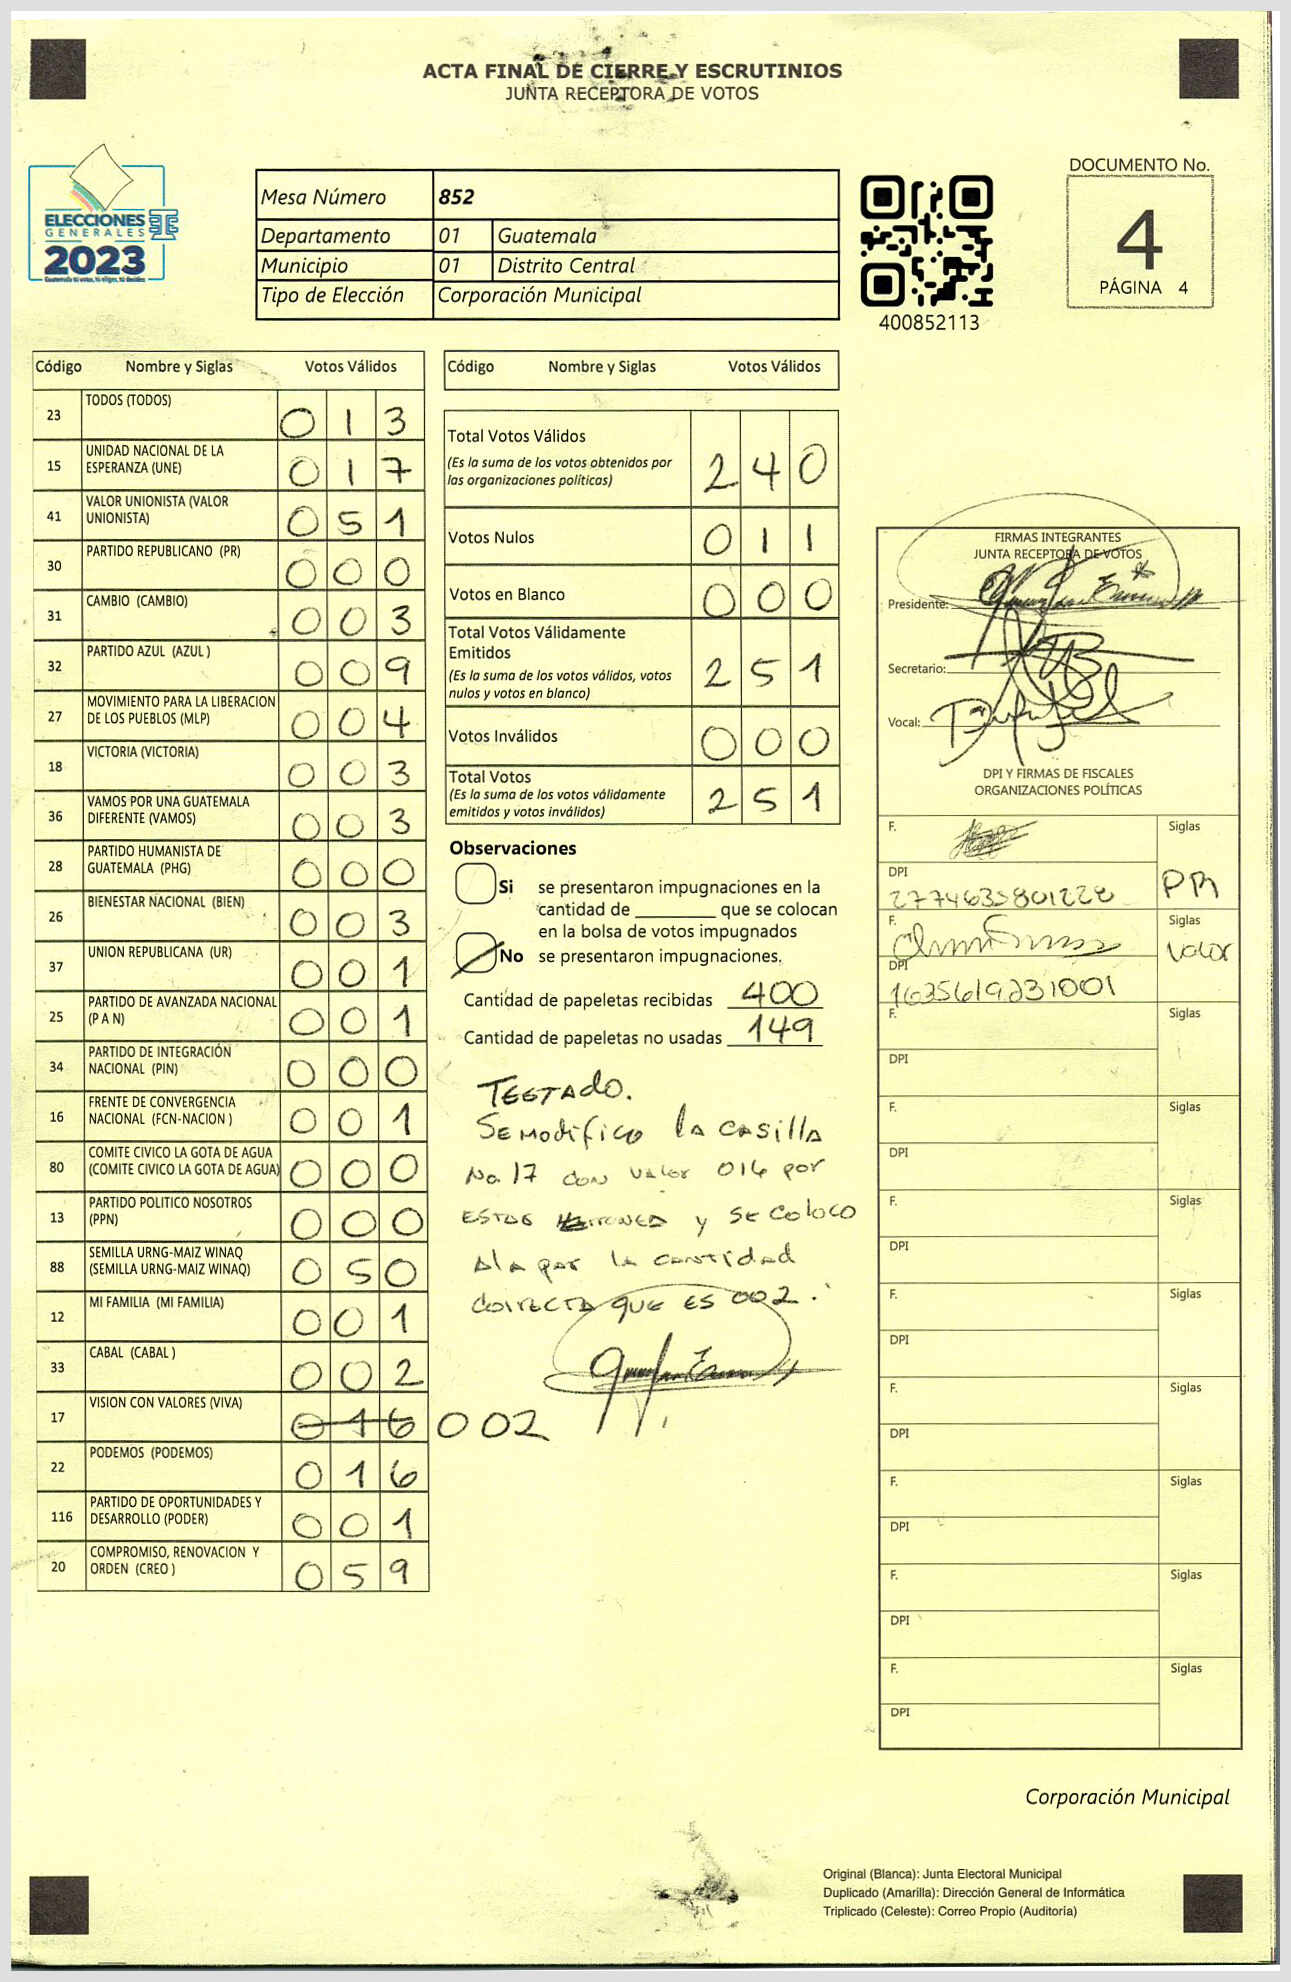 ACTA FINAL DE CIERRE Y ESCRUTINIOS
JUNTA RECEPTORA DE VOTOS
ELECCIONES
GENERALES
2023
Mesa Número 852
Departamento 01 Guatemala
Municipio 01 Distrito Central
Tipo de Elección Corporación Municipal
400852113
DOCUMENTO No.
4
PÁGINA 4
Código Nombre y Siglas Votos Válidos
23 TODOS (TODOS) 013
15 UNIDAD NACIONAL DE LA
ESPERANZA (UNE) 017
41 VALOR UNIONISTA (VALOR
UNIONISTA) 051
30 PARTIDO REPUBLICANO (PR) 000
31 CAMBIO (CAMBIO) 003
32 PARTIDO AZUL (AZUL ) 009
27 MOVIMIENTO PARA LA LIBERACION
DE LOS PUEBLOS (MLP) 004
18 VICTORIA (VICTORIA) 003
36 VAMOS POR UNA GUATEMALA
DIFERENTE (VAMOS) 003
28 PARTIDO HUMANISTA DE
GUATEMALA (PHG) 000
26 BIENESTAR NACIONAL (BIEN) 003
37 UNION REPUBLICANA (UR) 001
25 PARTIDO DE AVANZADA NACIONAL
(P A N) 001
34 PARTIDO DE INTEGRACIÓN
NACIONAL (PIN) 000
16 FRENTE DE CONVERGENCIA
NACIONAL (FCN-NACION ) 001
80 COMITE CIVICO LA GOTA DE AGUA
(COMITE CIVICO LA GOTA DE AGUA) 000
13 PARTIDO POLITICO NOSOTROS
(PPN) 000
88 SEMILLA URNG-MAIZ WINAQ
(SEMILLA URNG-MAIZ WINAQ) 050
12 MI FAMILIA (MI FAMILIA) 001
33 CABAL (CABAL ) 002
17 VISION CON VALORES (VIVA) 016 002
22 PODEMOS (PODEMOS) 016
116 PARTIDO DE OPORTUNIDADES Y
DESARROLLO (PODER) 001
20 COMPROMISO, RENOVACION Y
ORDEN (CREO ) 059
Código Nombre y Siglas Votos Válidos
Total Votos Válidos 240
(Es la suma de los votos obtenidos por
las organizaciones políticas)
Votos Nulos 011
Votos en Blanco 000
Total Votos Válidamente
Emitidos 251
(Es la suma de los votos válidos, votos
nulos y votos en blanco)
Votos Inválidos 000
Total Votos 251
(Es la suma de los votos válidamente
emitidos y votos inválidos)
Observaciones
Si se presentaron impugnaciones en la
cantidad de ________ que se colocan
en la bolsa de votos impugnados
No se presentaron impugnaciones.
Cantidad de papeletas recibidas 400
Cantidad de papeletas no usadas 149
TESTADO.
SE MODIFICO la CASILLA
No. 17 con valor 016 por
ESTAR y SE COLOCO
ALA PAR la cantidad
CORRECTA QUE ES 002.
FIRMAS INTEGRANTES
JUNTA RECEPTORA DE VOTOS
Presidente:
Secretario:
Vocal:
DPI Y FIRMAS DE FISCALES
ORGANIZACIONES POLÍTICAS
F. Siglas
DPI PR
2774635801228
F. Siglas
DPI Valor
1635619231001
F. Siglas
DPI
F. Siglas
DPI
F. Siglas
DPI
F. Siglas
DPI
F. Siglas
DPI
F. Siglas
DPI
F. Siglas
DPI
F. Siglas
DPI
Corporación Municipal
Original (Blanca): Junta Electoral Municipal
Duplicado (Amarilla): Dirección General de Informática
Triplicado (Celeste): Correo Propio (Auditoría)